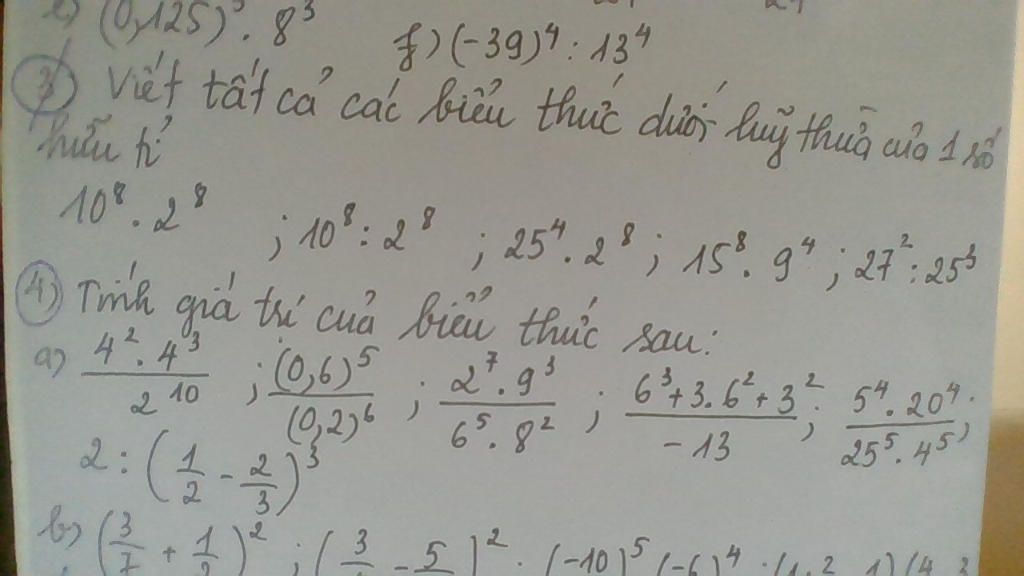 (0,125)³ . 8³
f) (-39)⁴ : 13⁴
3) Viết tất cả các biểu thức dưới luỹ thừa của 1 số
hữu tỉ
10⁸ . 2⁸ ; 10⁸ : 2⁸ ; 25⁴ . 2⁸ ; 15⁸ . 9⁴ ; 27² : 25³
4) Tính giá trị của biểu thức sau:
a) (4² . 4³)/(2¹⁰) ; (0,6)⁵/(0,2)⁶ ; (2⁷ . 9³)/(6⁵ . 8²) ; (6³ + 3 . 6² + 3²)/(-13) ; (5⁴ . 20⁴)/(25⁵ . 4⁵) ;
2 : (1/2 - 2/3)³
b) (3/7 + 1/2)² ; (3/ - 5/)² . (-10)⁵ (-6)⁴